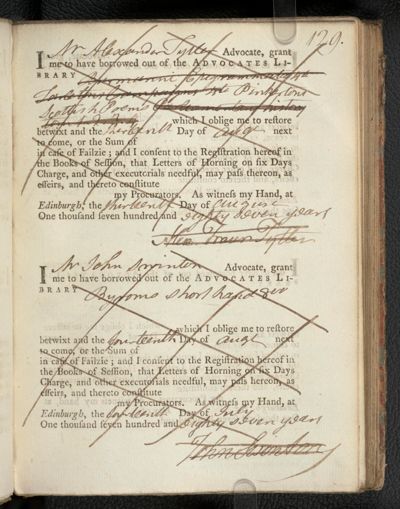 129.
I Mr Alexander Tytler Advocate, grant
me to have borrowed out of the ADVOCATES LI-
BRARY
Pinkertons
Scottish Poems
which I oblige me to restore
betwixt and the thirteenth Day of augt next
to come, or the Sum of
in case of Failzie; and I consent to the Registration hereof in
the Books of Session, that Letters of Horning on six Days
Charge, and other executorials needful, may pass thereon, as
effeirs, and thereto constitute
my Procurators. As witness my Hand, at
Edinburgh, the thirteenth Day of August
One thousand seven hundred and eighty seven years
Alexr Fraser Tytler
I Mr John Swinton Advocate, grant
me to have borrowed out of the ADVOCATES LI-
BRARY
Byroms Shorthand
which I oblige me to restore
betwixt and the fourteenth Day of augt next
to come, or the Sum of
in case of Failzie; and I consent to the Registration hereof in
the Books of Session, that Letters of Horning on six Days
Charge, and other executorials needful, may pass hereon, as
effeirs, and thereto constitute
my Procurators. As witness my Hand, at
Edinburgh, the fourteenth Day of July
One thousand seven hundred and eighty seven years
John Swinton